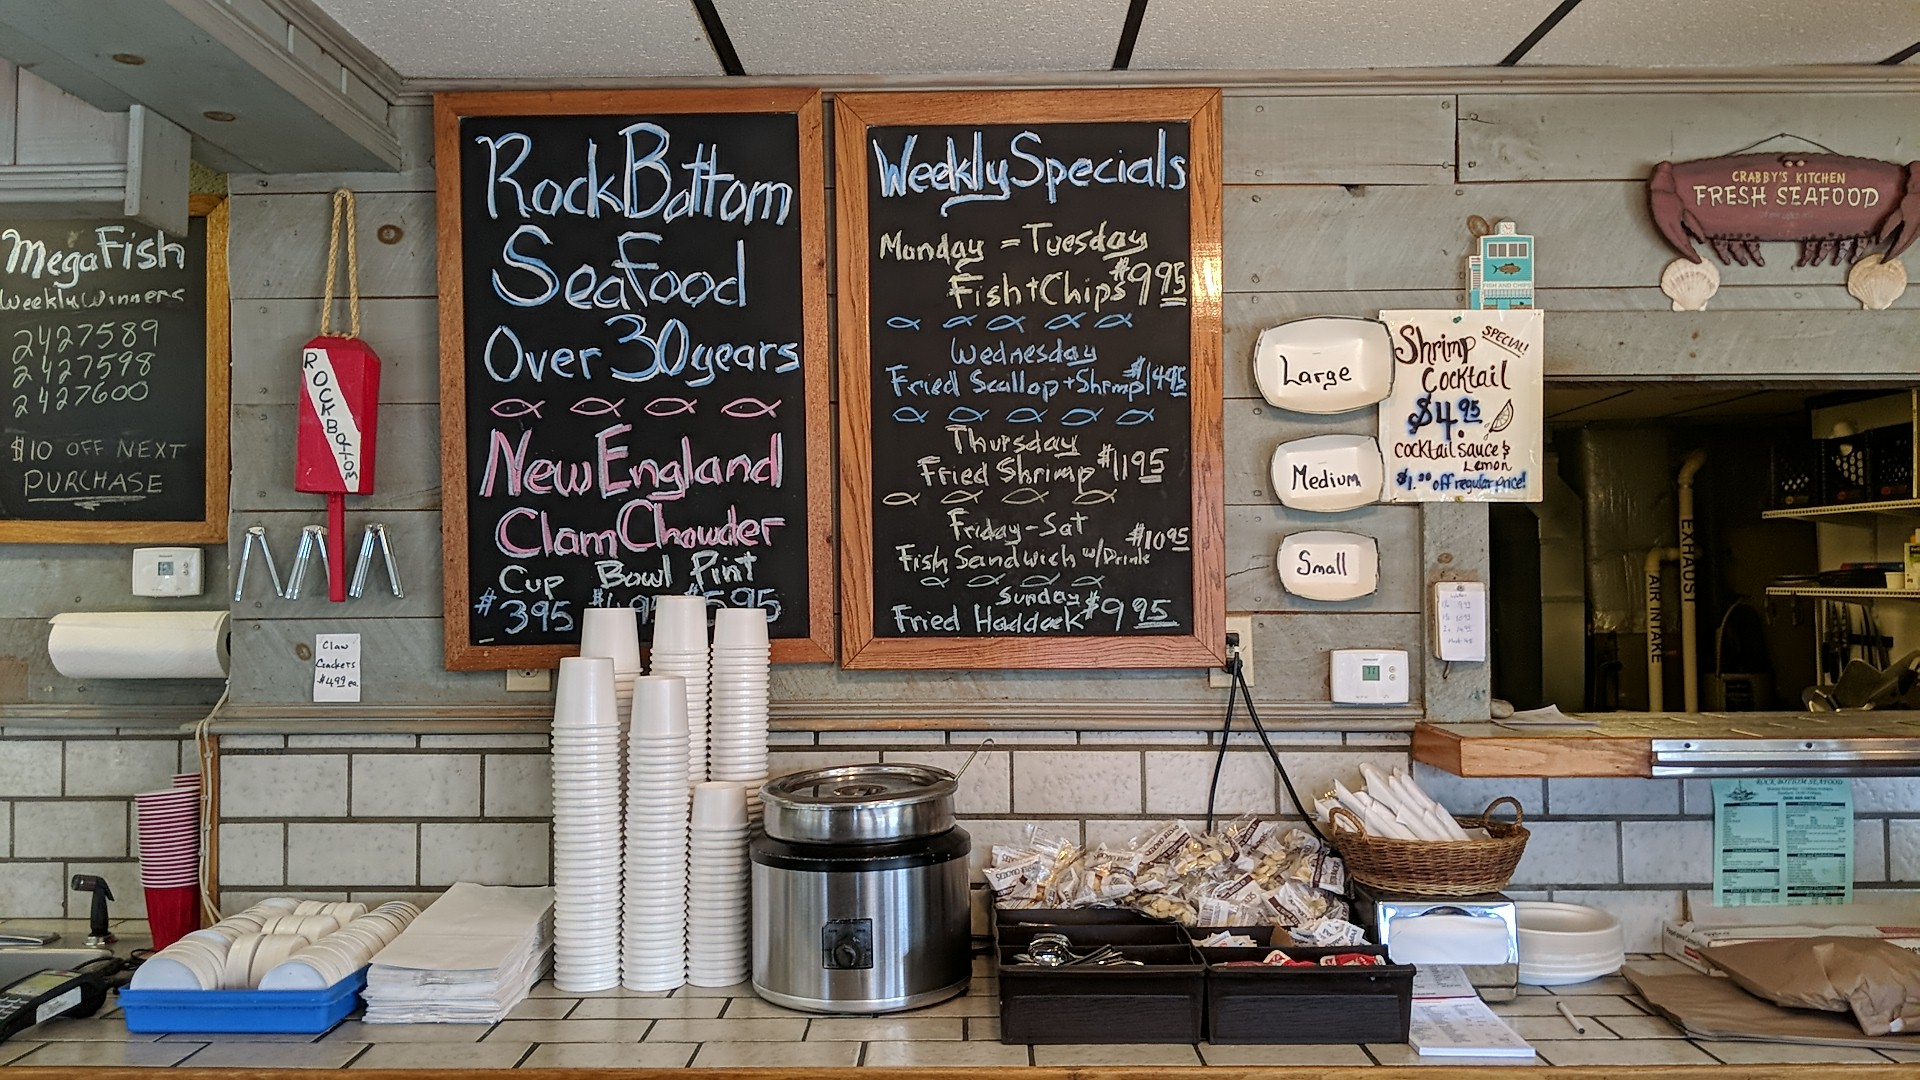 MegaFish
Weekly Winners
2427589
2427598
2427600
$10 OFF NEXT
PURCHASE
ROCK BOTTOM
Claw
Crackers
$4.99 ea
Rock Bottom
Seafood
Over 30 years
New England
Clam Chowder
Cup Bowl Pint
$3.95 $4.95 $5.95
Weekly Specials
Monday = Tuesday
Fish+Chips $9.95
Wednesday
Fried Scallop + Shrimp $14.95
Thursday
Fried Shrimp $11.95
Friday-Sat
Fish Sandwich w/Drink $10.95
Sunday
Fried Haddock $9.95
Large
Medium
Small
FISH AND CHIPS
Shrimp SPECIAL!
Cocktail
$4.95
cocktail sauce &
Lemon
$1.00 off regular price!
CRABBY'S KITCHEN
FRESH SEAFOOD
EXHAUST
AIR INTAKE
ROCK BOTTOM SEAFOOD